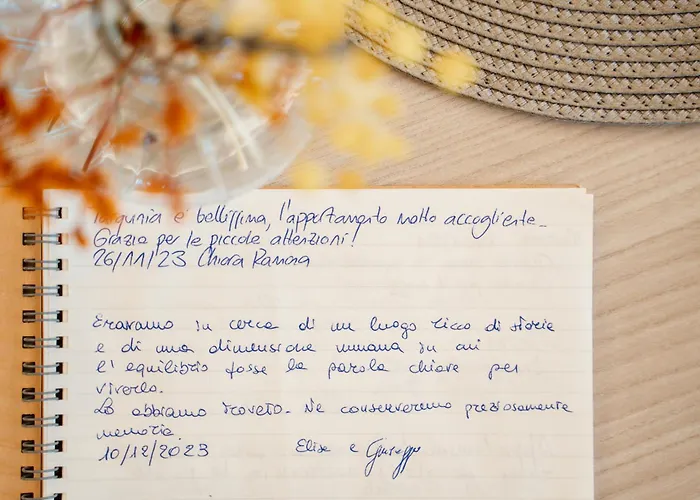 Tarquinia e' bellissima, l'appartamento molto accogliente_
Grazie per le piccole attenzioni!
26/11/23 Chiara Ramona
Eravamo in cerca di un luogo ricco di storie
e di una dimensione umana in cui
l'equilibrio fosse la parola chiave per
viverlo.
Lo abbiamo trovato. Ne conserveremo preziosamente
memoria.
10/12/2023 Elisa e Giuseppe